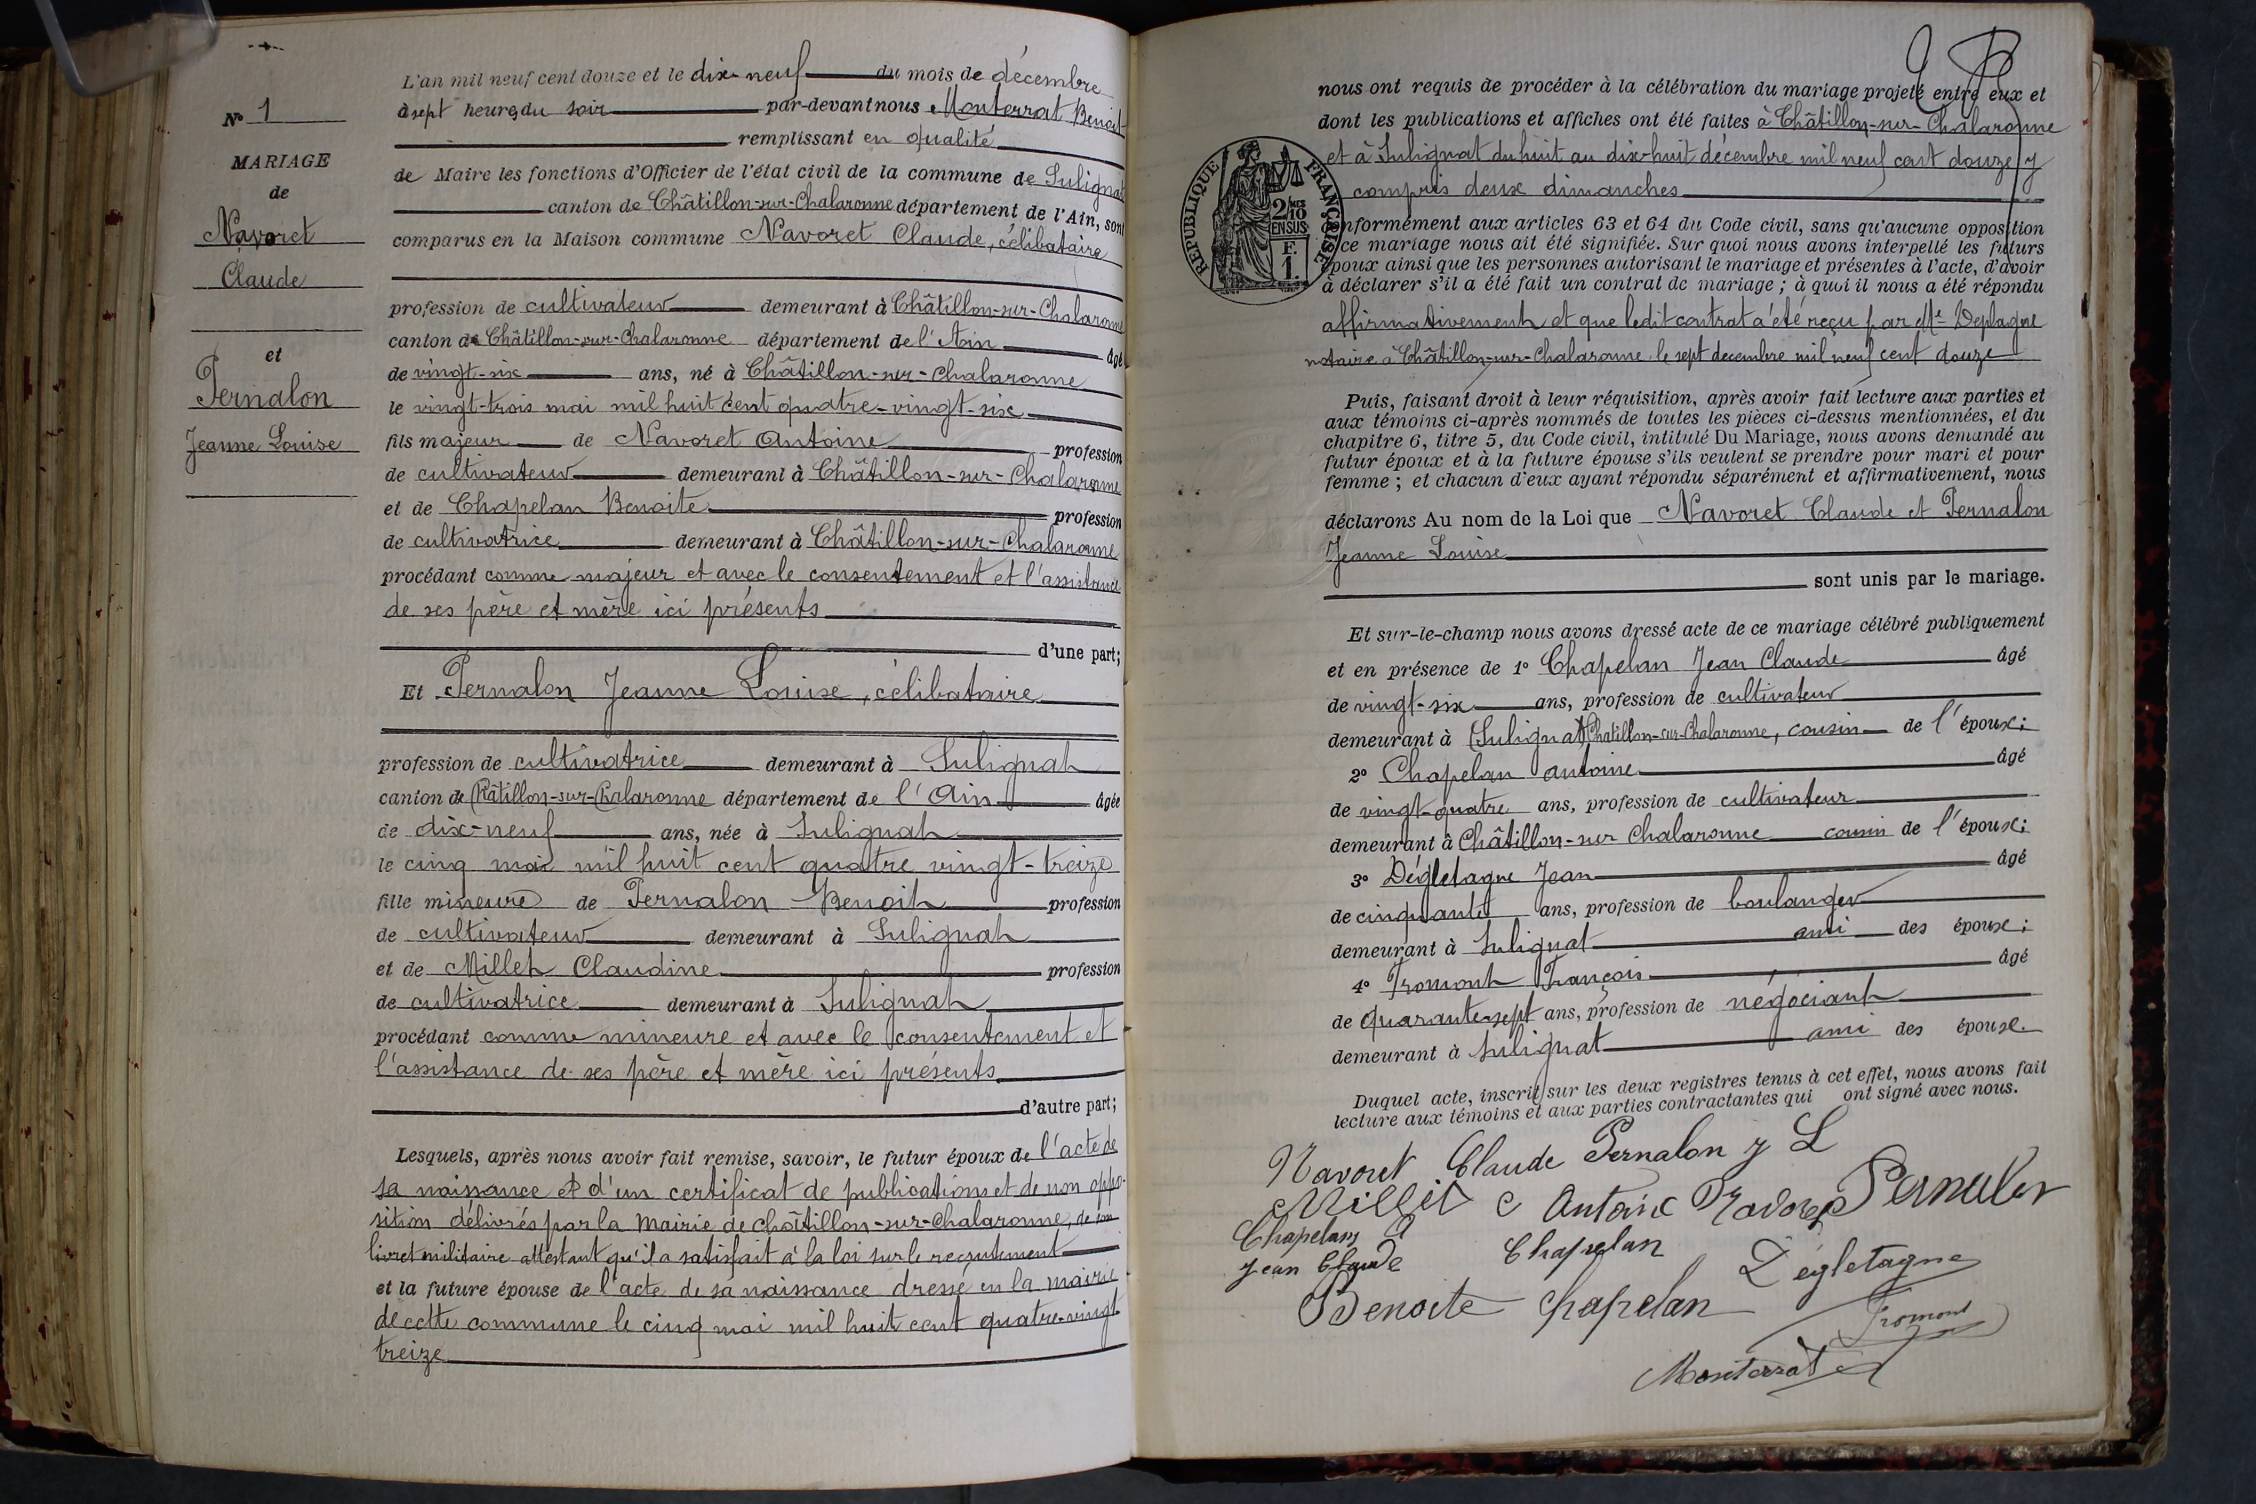 L'an mil neuf cent douze et le dix-neuf du mois de décembre
à sept heures du soir par-devant nous Monterrat Benoit
remplissant en qualité
de Maire les fonctions d'Officier de l'état civil de la commune de Sulignat
canton de Châtillon-sur-Chalaronne département de l'Ain, sont
comparus en la Maison commune Navoret Claude, célibataire
profession de cultivateur demeurant à Châtillon-sur-Chalaronne
canton de Châtillon-sur-Chalaronne département de l'Ain âgé
de vingt-six ans, né à Châtillon-sur-Chalaronne
le vingt-trois mai mil huit cent quatre-vingt-six
fils majeur de Navoret Antoine profession
de cultivateur demeurant à Châtillon-sur-Chalaronne
et de Chapelan Benoite profession
de cultivatrice demeurant à Châtillon-sur-Chalaronne
procédant comme majeur et avec le consentement et l'assistance
de ses père et mère ici présents
d'une part;
Et Pernalon Jeanne Louise, célibataire
profession de cultivatrice demeurant à Sulignat
canton de Châtillon-sur-Chalaronne département de l'Ain âgée
de dix-neuf ans, née à Sulignat
le cinq mai mil huit cent quatre vingt-treize
fille mineure de Pernalon Benoit profession
de cultivateur demeurant à Sulignat
et de Millet Claudine profession
de cultivatrice demeurant à Sulignat
procédant comme mineure et avec le consentement et
l'assistance de ses père et mère ici présents
d'autre part;
Lesquels, après nous avoir fait remise, savoir, le futur époux de l'acte de
sa naissance et d'un certificat de publications et de non oppo-
sition délivrés par la mairie de Châtillon-sur-Chalaronne, de son
livret militaire attestant qu'il a satisfait à la loi sur le recrutement
et la future épouse de l'acte de sa naissance dressé en la mairie
de cette commune le cinq mai mil huit cent quatre-vingt
treize
No 1
MARIAGE
de
Navoret
Claude
et
Pernalon
Jeanne Louise
nous ont requis de procéder à la célébration du mariage projeté entre eux et
dont les publications et affiches ont été faites à Châtillon-sur-Chalaronne
et à Sulignat du huit au dix-huit décembre mil neuf cent douze y
compris deux dimanches
RÉPUBLIQUE FRANÇAISE
2/10
EN SUS
F.
1.
nformément aux articles 63 et 64 du Code civil, sans qu'aucune opposition
ce mariage nous ait été signifiée. Sur quoi nous avons interpellé les futurs
époux ainsi que les personnes autorisant le mariage et présentes à l'acte, d'avoir
à déclarer s'il a été fait un contrat de mariage ; à quoi il nous a été répondu
affirmativement et que ledit contrat a été reçu par Me Deplagne
notaire à Châtillon-sur-Chalaronne le sept décembre mil neuf cent douze
Puis, faisant droit à leur réquisition, après avoir fait lecture aux parties et
aux témoins ci-après nommés de toutes les pièces ci-dessus mentionnées, et du
chapitre 6, titre 5, du Code civil, intitulé Du Mariage, nous avons demandé au
futur époux et à la future épouse s'ils veulent se prendre pour mari et pour
femme ; et chacun d'eux ayant répondu séparément et affirmativement, nous
déclarons Au nom de la Loi que Navoret Claude et Pernalon
Jeanne Louise
sont unis par le mariage.
Et sur-le-champ nous avons dressé acte de ce mariage célébré publiquement
et en présence de 1º Chapelan Jean Claude âgé
de vingt-six ans, profession de cultivateur
demeurant à Sulignat Chatillon-sur-Chalaronne, cousin de l'époux;
2º Chapelan antoine âgé
de vingt-quatre ans, profession de cultivateur
demeurant à Châtillon-sur Chalaronne cousin de l'époux;
3º Dégletagne Jean âgé
de cinquante ans, profession de boulanger
demeurant à Sulignat ami des époux;
4º Fromont François âgé
de quarante-sept ans, profession de négociant
demeurant à Sulignat ami des époux.
Duquel acte, inscrit sur les deux registres tenus à cet effet, nous avons fait
lecture aux témoins et aux parties contractantes qui ont signé avec nous.
Navoret Claude Pernalon J L
Millet C Antoine Navoret Pernalon
Chapelan A
Jean Claude Chapelan Dégletagne
Benoite Chapelan Fromont
Monterrat